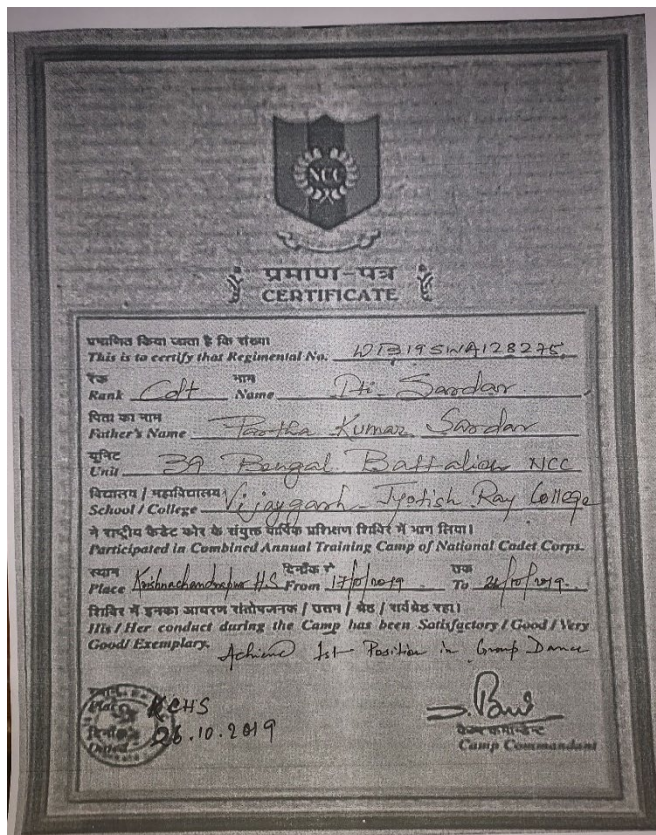 NCC
प्रमाण-पत्र
CERTIFICATE
प्रमाणित किया जाता है कि संख्या
This is to certify that Regimental No. WB19SWA128275
रैंक नाम
Rank Cdt Name Sardar
पिता का नाम
Father's Name Partha Kumar Sardar
यूनिट
Unit 39 Bengal Battalion NCC
विद्यालय / महाविद्यालय
School / College Vijaygarh Jyotish Ray College
ने राष्ट्रीय कैडेट कोर के संयुक्त वार्षिक प्रशिक्षण शिविर में भाग लिया।
Participated in Combined Annual Training Camp of National Cadet Corps.
स्थान दिनाँक से तक
Place Krishnachandrapur H.S From 17/10/2019 To 26/10/2019.
शिविर में इनका आचरण संतोषजनक / उत्तम / श्रेष्ठ / सर्वश्रेष्ठ रहा।
His / Her conduct during the Camp has been Satisfactory / Good / Very
Good / Exemplary. Achieved 1st Position in Group Dance
KCHS
Dated 26.10.2019
कैम्प कमान्डेन्ट
Camp Commandant